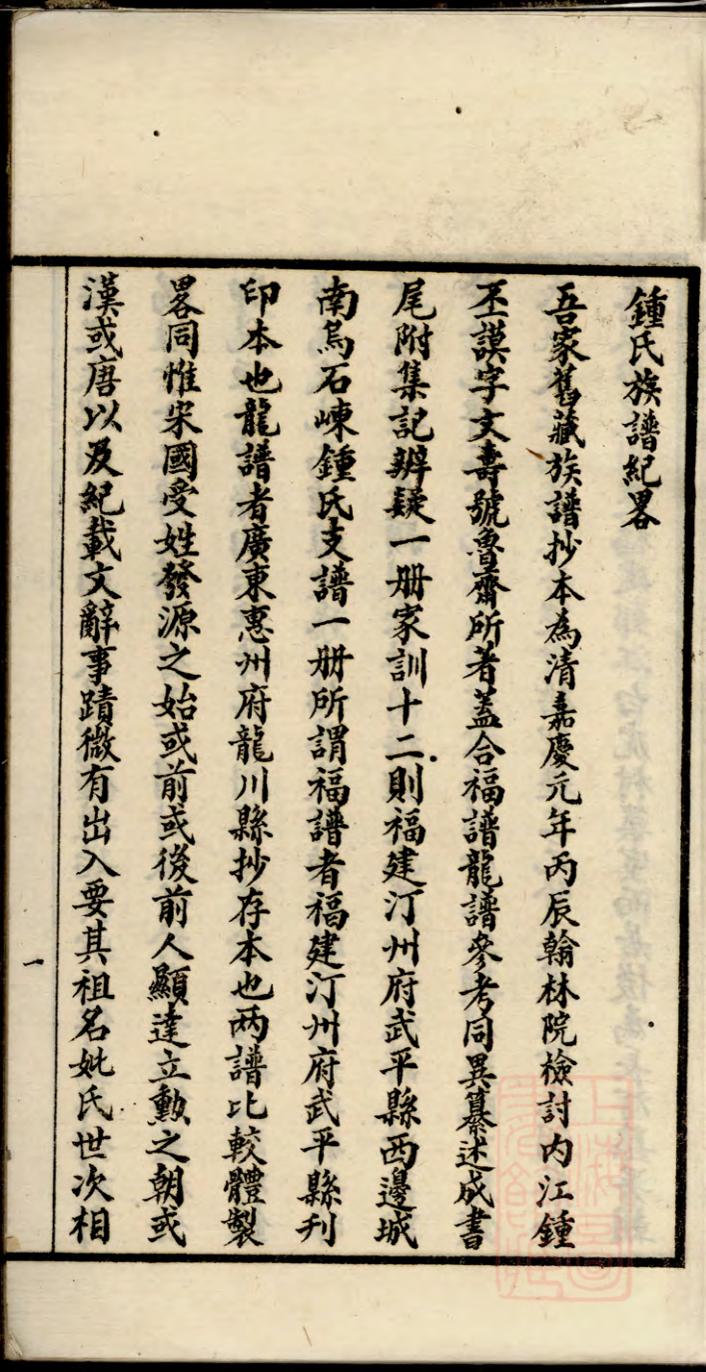 鍾氏族譜紀畧
吾家舊藏族譜抄本為清嘉慶元年丙辰翰林院檢討内江鍾
丕謨字文壽號魯齋所著蓋合福譜龍譜參考同異纂述成書
尾附集記辨疑一册家訓十二則福建汀州府武平縣西邊城
南烏石崠鍾氏支譜一册所謂福譜者福建汀州府武平縣刋
印本也龍譜者廣東惠州府龍川縣抄存本也两譜比較體製
畧同惟宋國受姓發源之始或前或後前人顯達立勲之朝或
漢或唐以及紀載文辭事蹟微有出入要其祖名妣氏世次相
一